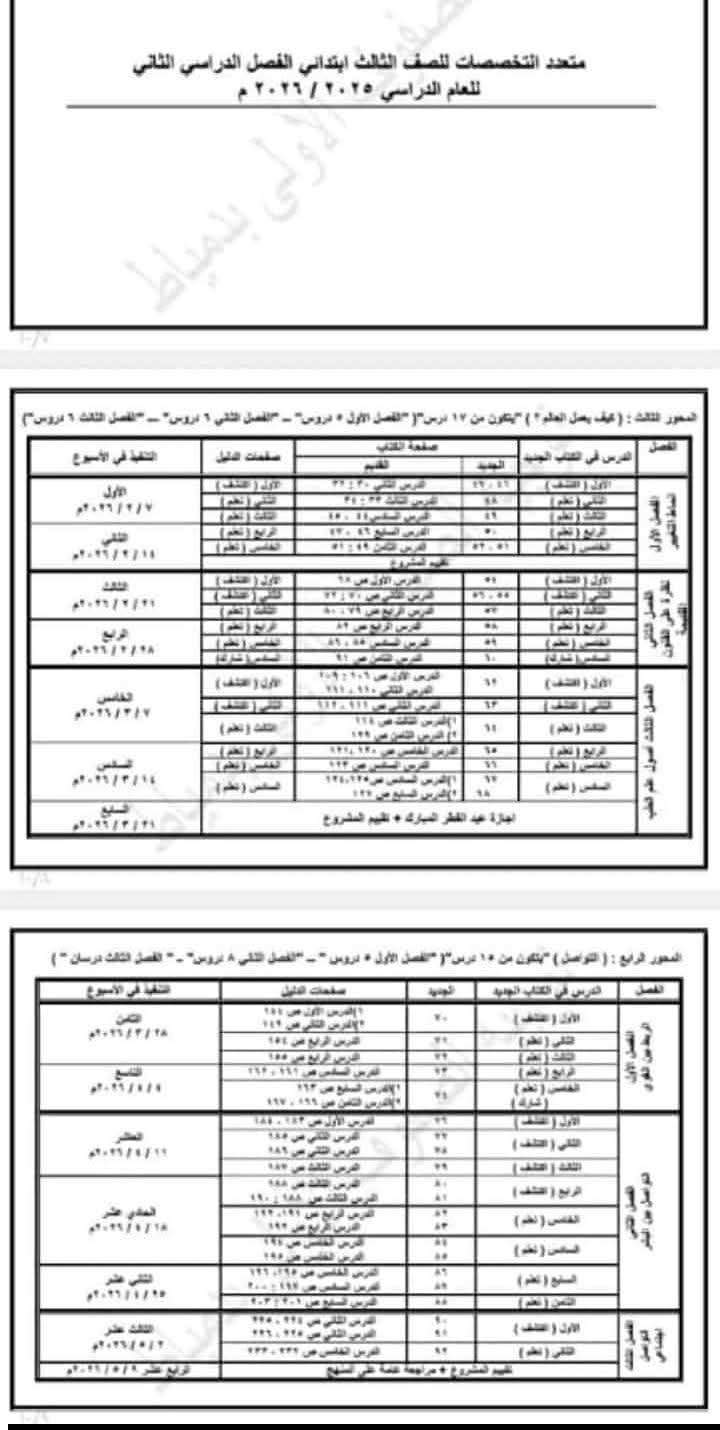 متعدد التخصصات للصف الثالث ابتدائي الفصل الدراسي الثاني
للعام الدراسي ٢٠٢٥ / ٢٠٢٦ م
المحور الثالث : ( كيف يعمل العالم ؟ ) "يتكون من ١٧ درس" ( "الفصل الأول ٥ دروس" – "الفصل الثاني ٦ دروس" – "الفصل الثالث ٦ دروس" )
الفصل الدرس في الكتاب الجديد صفحة الكتاب صفحات الدليل التنفيذ في الأسبوع
الجديد القديم
الفصل الأول
الأول ( اكتشف ) ٤٦ ، ٤٧ الدرس الثاني ٣٠ : ٣٢ الأول ( اكتشف ) الأول ٧ / ٢ / ٢٠٢٦م
الثاني ( تعلم ) ٤٨ الدرس الثالث ٣٣ : ٣٤ الثاني ( تعلم )
الثالث ( تعلم ) ٤٩ الدرس السادس ٤٤ ، ٤٥ الثالث ( تعلم )
الرابع ( تعلم ) ٥٠ الدرس السابع ٤٦ ، ٤٧ الرابع ( تعلم ) الثاني ١٤ / ٢ / ٢٠٢٦م
الخامس ( تعلم ) ٥١ ، ٥٢ الدرس الثامن ٤٩ : ٥١ الخامس ( تعلم )
تقييم المشروع
الفصل الثاني نظرة على الفنون القديمة
الأول ( اكتشف ) ٥٤ الدرس الأول ص ٦٨ الأول ( اكتشف ) الثالث ٢١ / ٢ / ٢٠٢٦م
الثاني ( اكتشف ) ٥٥ ، ٥٦ الدرس الثاني ص ٧٠ : ٧٢ الثاني ( اكتشف )
الثالث ( تعلم ) ٥٧ الدرس الرابع ص ٧٩ ، ٨٠ الثالث ( تعلم )
الرابع ( تعلم ) ٥٨ الدرس الرابع ص ٨٢ الرابع ( تعلم ) الرابع ٢٨ / ٢ / ٢٠٢٦م
الخامس ( تعلم ) ٥٩ الدرس السادس ٨٥ ، ٨٦ الخامس ( تعلم )
السادس (شارك) ٦٠ الدرس الثامن ص ٩١ السادس (شارك)
الفصل الثالث أصول علم الطب
الأول ( اكتشف ) ٦٢ الدرس الأول ص ١٠٦ : الأول ( اكتشف ) الخامس ٧ / ٣ / ٢٠٢٦م
الثاني ( اكتشف ) ٦٣ الدرس الثاني ص ١١١ ، ١١٢ الثاني ( اكتشف )
الثالث ( تعلم ) ٦٤ ١) الدرس الثالث ص ١١٤ الثالث ( تعلم )
٢) الدرس الثامن ص
الرابع ( تعلم ) ٦٥ الدرس الخامس ص ١٢٠ ، ١٢١ الرابع ( تعلم ) السادس ١٤ / ٣ / ٢٠٢٦م
الخامس ( تعلم ) ٦٦ الدرس السادس ص ١٢٣ الخامس ( تعلم )
السادس ( تعلم ) ٦٧ ١) الدرس السادس ص ١٢٥،١٢٤ السادس ( تعلم )
٦٨ ٢) الدرس السابع ص ١٢٧
اجازة عيد الفطر المبارك + تقييم المشروع السابع ٢١ / ٣ / ٢٠٢٦م
المحور الرابع : ( التواصل ) "يتكون من ١٥ درس" ( "الفصل الأول ٥ دروس" – "الفصل الثاني ٨ دروس" – "الفصل الثالث درسان" )
الفصل الدرس في الكتاب الجديد الجديد صفحات الدليل التنفيذ في الأسبوع
الفصل الأول الربط بين القرى
الأول ( اكتشف ) ٧٠ ١) الدرس الأول ص الثامن ٢٨ / ٣ / ٢٠٢٦م
٢) الدرس الثاني ص ١٤٢
الثاني ( تعلم ) ٧١ الدرس الرابع ص ١٥٤
الثالث ( تعلم ) ٧٢ الدرس الرابع ص ١٥٥
الرابع ( تعلم ) ٧٣ الدرس السادس ص ١٦١ ، ١٦٢ التاسع ٤ / ٤ / ٢٠٢٦م
الخامس ( تعلم ) ( شارك ) ٧٤ ١) الدرس السابع ص ١٦٣
٢) الدرس الثامن ص ١٦٦ ، ١٦٧
الفصل الثاني التواصل بين البشر
الأول ( اكتشف ) ٧٦ الدرس الأول ص ١٨٣ ، ١٨٤ العاشر ١١ / ٤ / ٢٠٢٦م
الثاني ( اكتشف ) ٧٧ الدرس الثاني ص ١٨٥
٧٨ الدرس الثاني ص ١٨٦
الثالث ( اكتشف ) ٧٩ الدرس الثالث ص ١٨٧
الرابع ( اكتشف ) ٨٠ الدرس الثالث ص ١٨٨ الحادي عشر ١٨ / ٤ / ٢٠٢٦م
٨١ الدرس الثالث ص ١٨٨ : ١٩٠
الخامس ( تعلم ) ٨٢ الدرس الرابع ص ١٩١، ١٩٢
٨٣ الدرس الرابع ص ١٩٣
السادس ( تعلم ) ٨٤ الدرس الخامس ص ١٩٤
٨٥ الدرس الخامس ص ١٩٥
السابع ( تعلم ) ٨٦ الدرس الخامس ص ١٩٥، ١٩٦ الثاني عشر ٢٥ / ٤ / ٢٠٢٦م
٨٧ الدرس السادس ص ١٩٧ : ٢٠٠
الثامن ( تعلم ) ٨٨ الدرس السابع ص ٢٠١ : ٢٠٣
الفصل الثالث التواصل اجتماعي
الأول ( اكتشف ) ٩٠ الدرس الثاني ص ٢٢٤ ، ٢٢٥ الثالث عشر ٢ / ٥ / ٢٠٢٦م
٩١ الدرس الثاني ص ٢٢٥ ، ٢٢٦
الثاني ( تعلم ) ٩٢ الدرس الخامس ص ٢٣٢ ، ٢٣٣
تقييم المشروع + مراجعة عامة على المنهج الرابع عشر ٩ / ٥ / ٢٠٢٦م